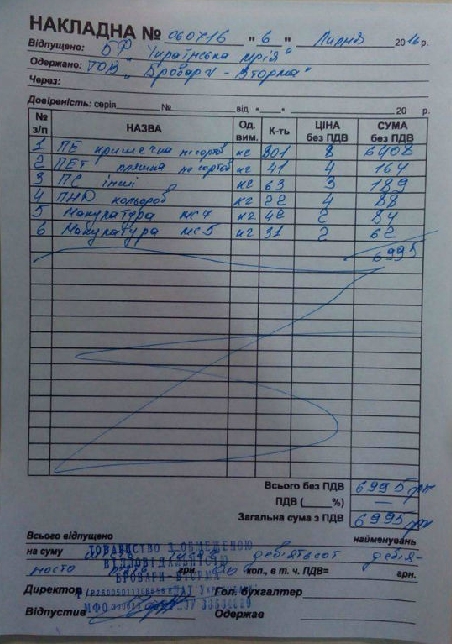 НАКЛАДНА № 060716 "6" Липня 2016 р.
Відпущено: БФ "Українська мрія"
Одержано: ТОВ "Бровари - Вторма"
Через:
Довіреність: серія № від " " 20 р.
№ з/п НАЗВА Од. вим. К-ть ЦІНА без ПДВ СУМА без ПДВ
1 ПЕ кг 801 8 6408
2 ПЕТ кг 41 4 164
3 ПС інші кг 63 3 189
4 ПНД кольоров кг 22 4 88
5 Макулатура мс7 кг 42 2 84
6 Макулатура мс5 кг 31 2 62
6995
Всього без ПДВ 6995 грн
ПДВ (____%) —
Загальна сума з ПДВ 6995 грн
Всього відпущено найменувань
на суму дев'ятсот дев'я-
носто грн. коп., в т. ч. ПДВ= грн.
ТОВАРИСТВО З ОБМЕЖЕНОЮ
ВІДПОВІДАЛЬНІСТЮ
Директор Гол. бухгалтер
Відпустив Одержав
МФО